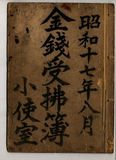 昭和十七年八月
金錢受拂簿
小使室